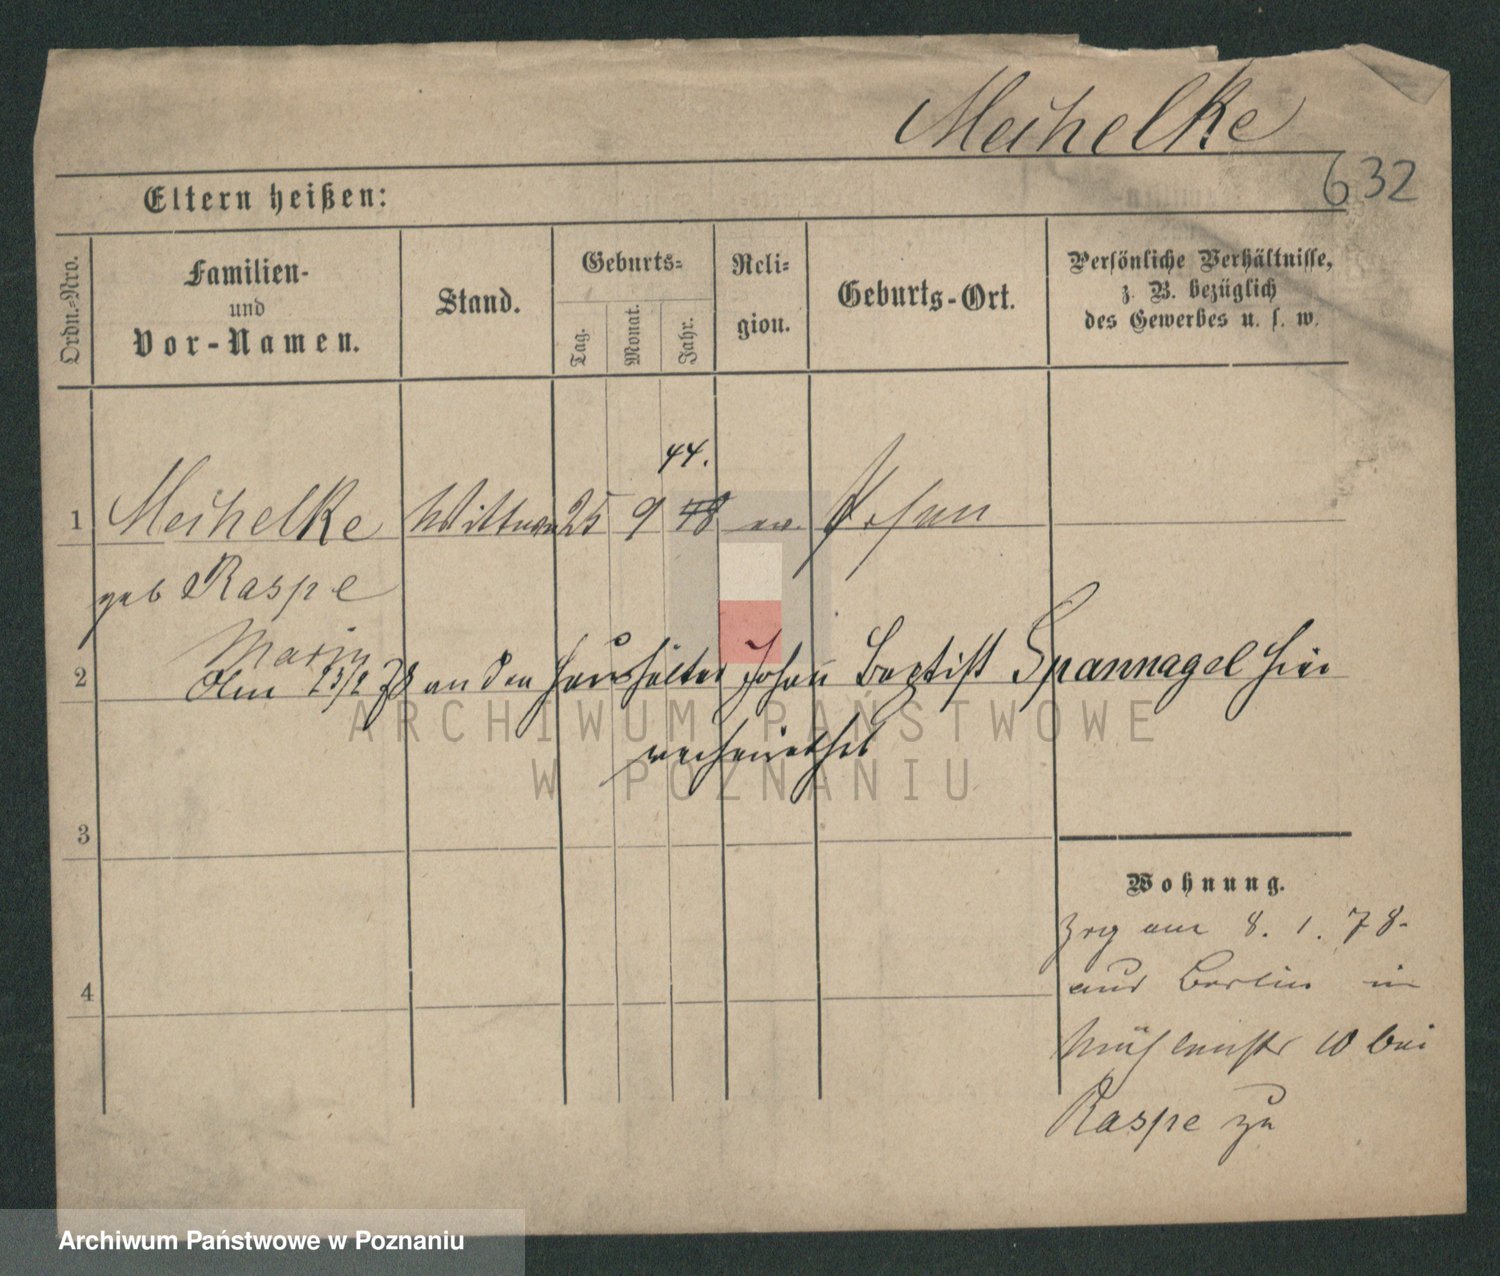 Meihelke
632
Eltern heißen:
Ordn.-Nro.
Familien-
und
Vor-Namen.
Stand.
Geburts-
Tag.
Monat.
Jahr.
Reli-
gion.
Geburts-Ort.
Persönliche Verhältnisse,
z. B. bezüglich
des Gewerbes u. s. w.
44.
1 Meihelke Wittwe 25 9 48 ev. Posen
geb Raspe
Marie
2 Am 25/2 78 an den Haushälter Johann Baptist Spannagel hier
verheirathet
ARCHIWUM PAŃSTWOWE
W POZNANIU
3
Wohnung.
Zzg am 8. 1. 78.
aus Berlin in
4
Mühlenstr 10 bei
Raspe zu
Archiwum Państwowe w Poznaniu